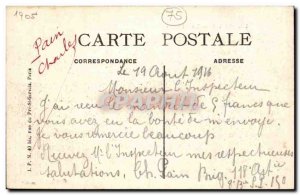 1905
75
Pain
Charles
CARTE POSTALE
CORRESPONDANCE
ADRESSE
Le 19 Aout 1916
Monsieur l'Inspecteur
J'ai reçu mandat de 5 francs que
vous avez eu la bonté de m'envoyer.
Je vous remercie beaucoup
Recevez Mr l'Inspecteur mes respectueuses
salutations, Ch. Pain Brig. 118e